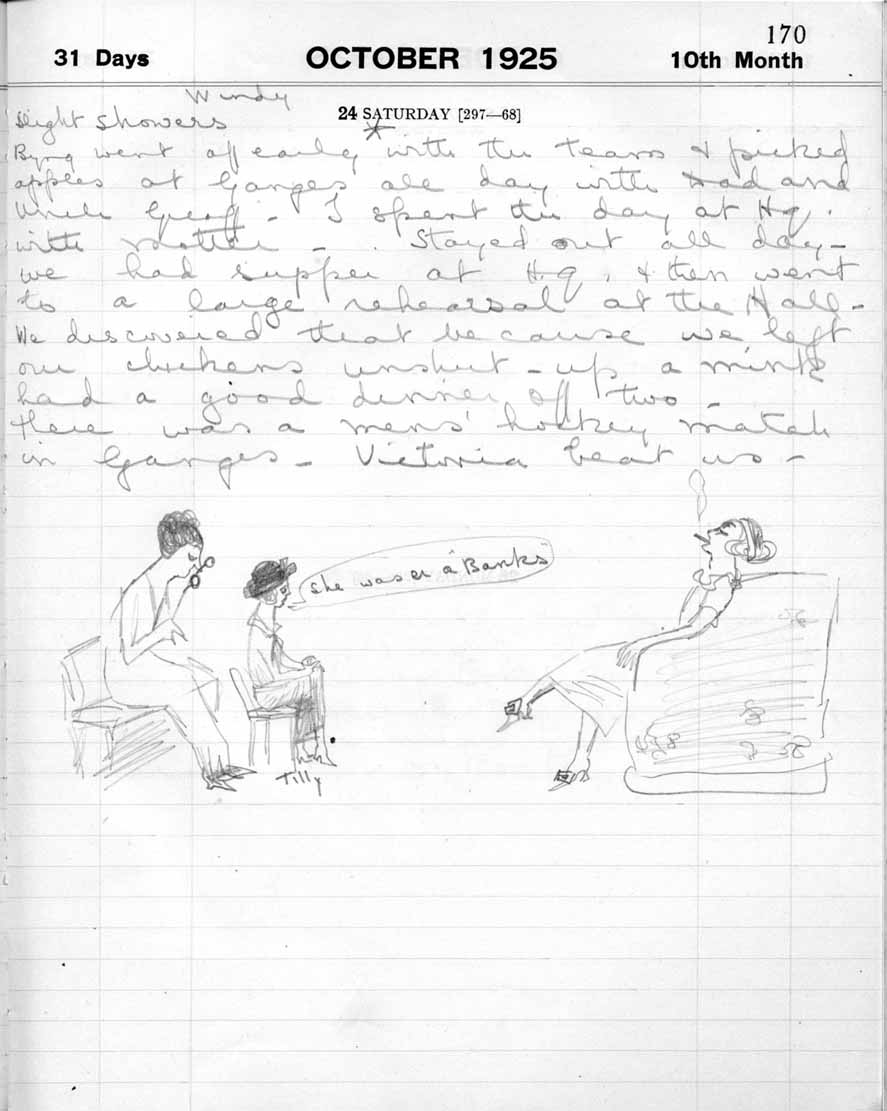 170
31 Days OCTOBER 1925 10th Month
Windy
24 SATURDAY [297—68]
slight showers
Byng went off early with the team & picked
apples at Ganges all day with Dad and
Uncle Geoff - I spent the day at Hq.
with - Stayed out all day -
we had supper at H.q. & then went
to a large rehearsal at the Hall -
We discovered that because we left
our chickens unshut-up a mink
had a good dinner off two -
There was a mens' hockey match
in Ganges - Victoria beat us -
She was a "Banks"
Tilly